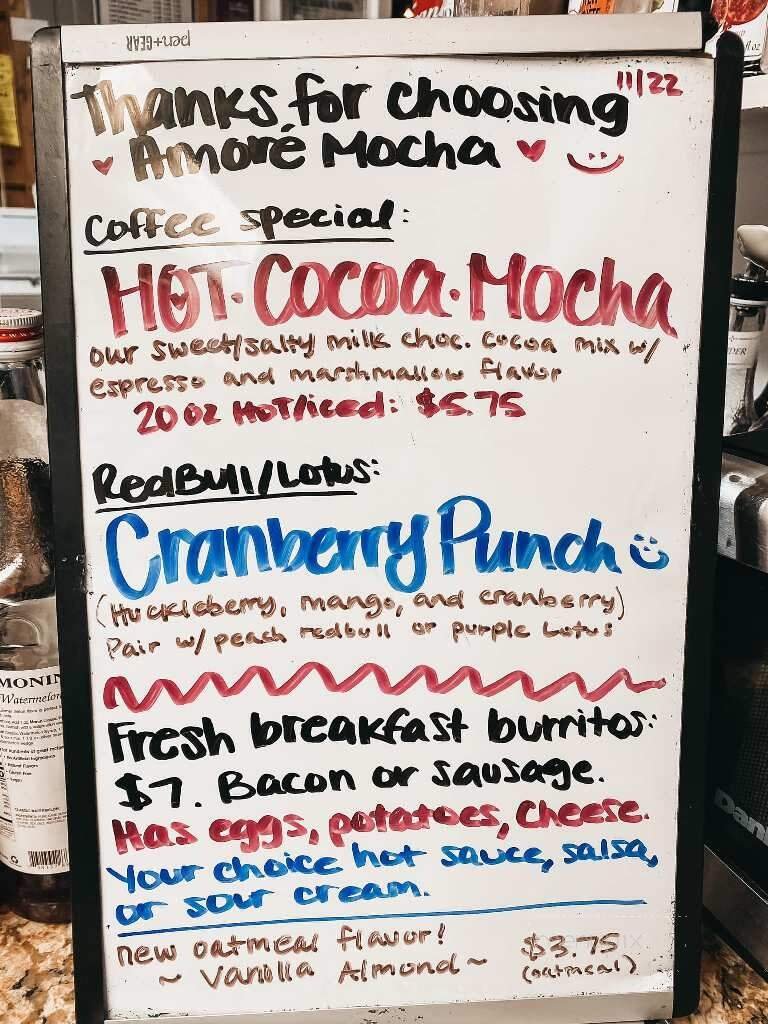 pen+GEAR
11/22
Thanks for choosing
Amoré Mocha
Coffee special:
HOT·Cocoa·Mocha
our sweet/salty milk choc. cocoa mix w/
espresso and marshmallow flavor
20 oz HOT/iced: $5.75
RedBull/Lotus:
Cranberry Punch
(Huckleberry, mango, and cranberry)
Pair w/ peach redbull or purple Lotus
Fresh breakfast burritos:
$7. Bacon or sausage.
Has eggs, potatoes, cheese.
Your choice hot sauce, salsa,
or sour cream.
new oatmeal flavor! $3.75
~ Vanilla Almond ~ (oatmeal)
MONIN
Watermelon